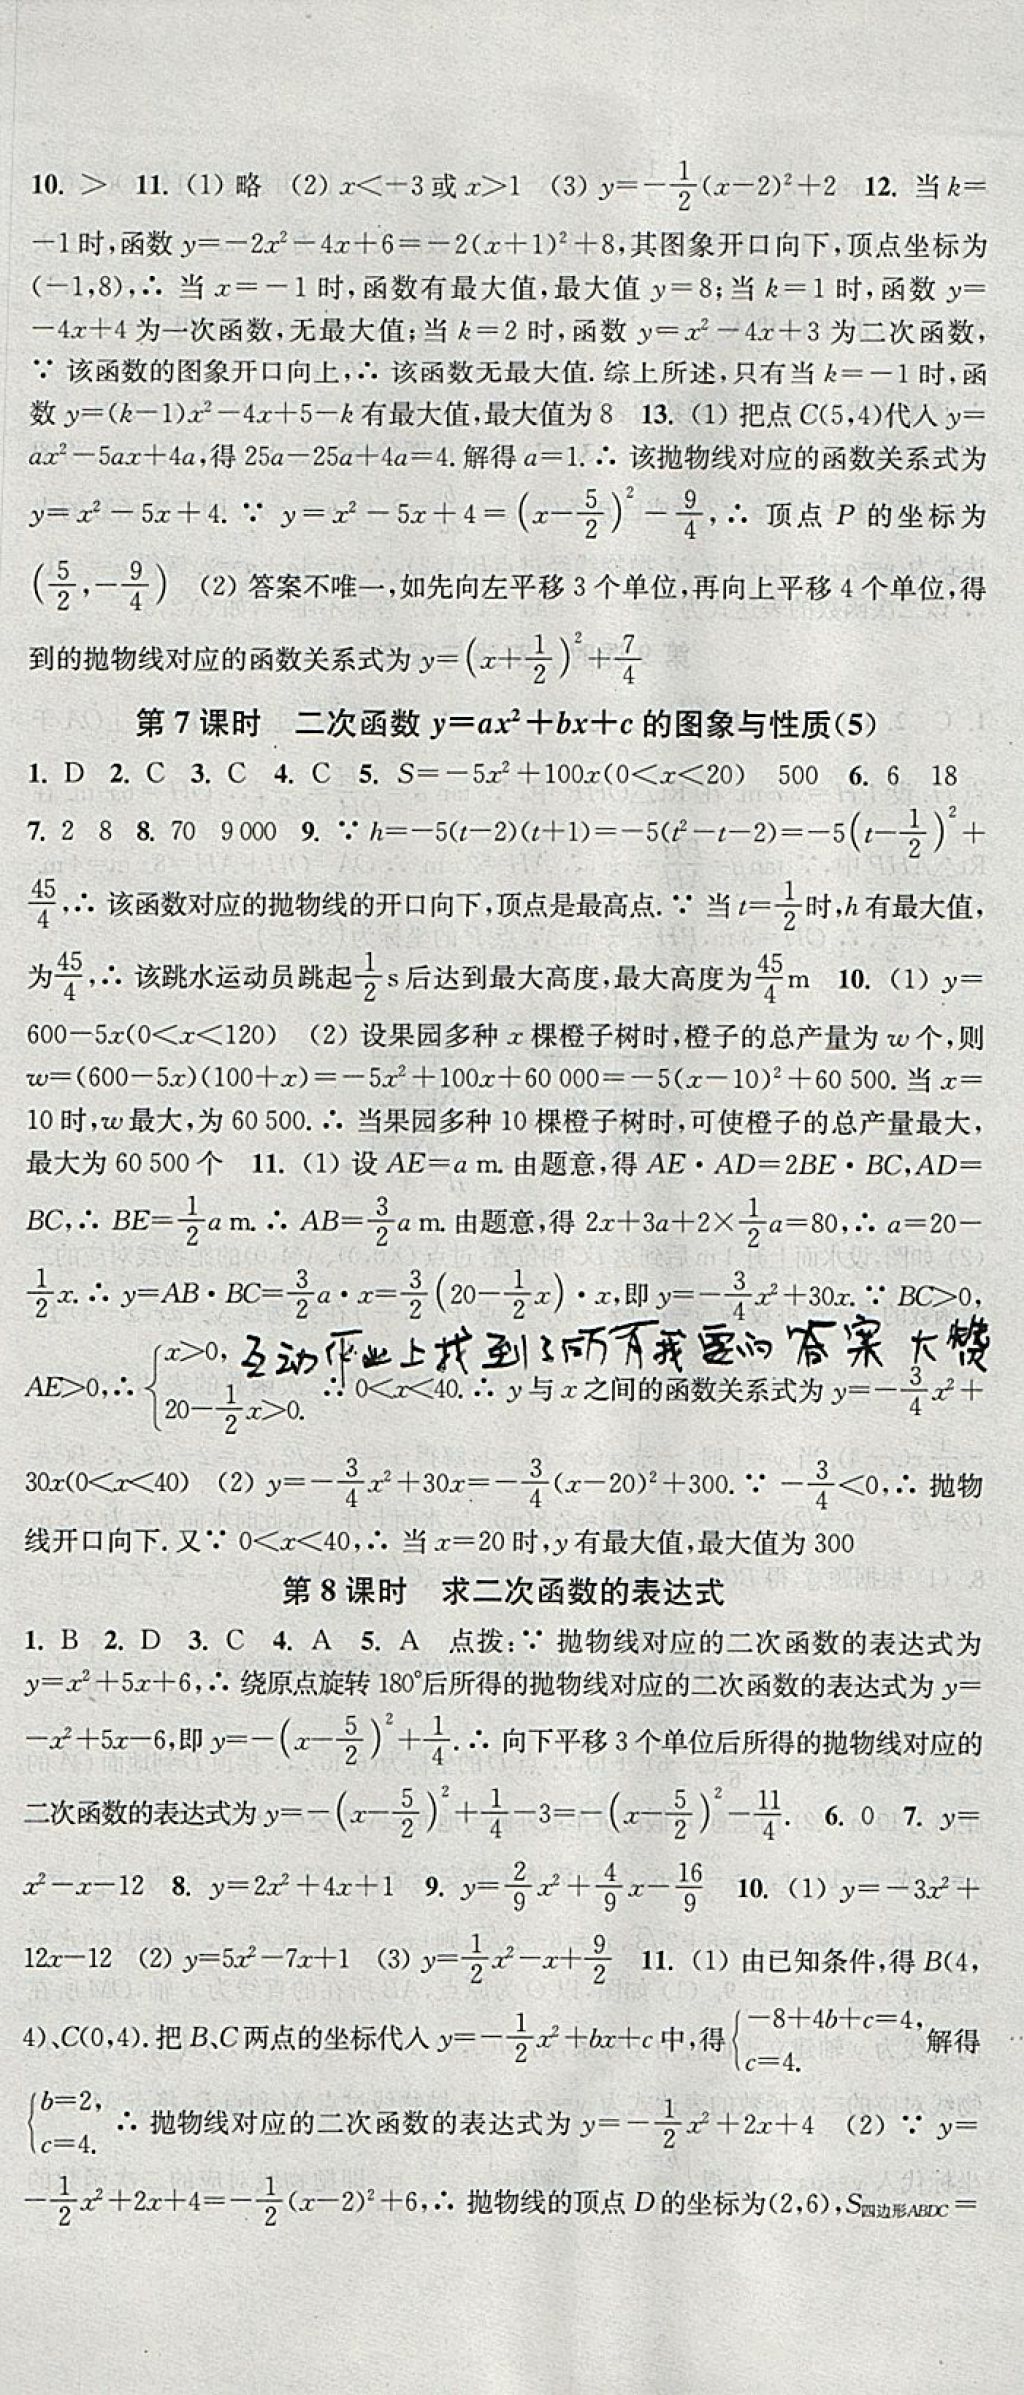 10. > 11. (1) 略 (2) x<-3或x>1 (3) y=-\frac{1}{2}(x-2)²+2 12. 当k=
-1时,函数y=-2x²-4x+6=-2(x+1)²+8,其图象开口向下,顶点坐标为
(-1,8),∴ 当x=-1时,函数有最大值,最大值y=8;当k=1时,函数y=
-4x+4为一次函数,无最大值;当k=2时,函数y=x²-4x+3为二次函数,
∵ 该函数的图象开口向上,∴ 该函数无最大值.综上所述,只有当k=-1时,函
数y=(k-1)x²-4x+5-k有最大值,最大值为8 13. (1) 把点C(5,4)代入y=
ax²-5ax+4a,得25a-25a+4a=4.解得a=1.∴ 该抛物线对应的函数关系式为
y=x²-5x+4.∵ y=x²-5x+4=(x-\frac{5}{2})²-\frac{9}{4},∴ 顶点P的坐标为
(\frac{5}{2},-\frac{9}{4}) (2) 答案不唯一,如先向左平移3个单位,再向上平移4个单位,得
到的抛物线对应的函数关系式为y=(x+\frac{1}{2})²+\frac{7}{4}
第7课时 二次函数y=ax²+bx+c的图象与性质(5)
1. D 2. C 3. C 4. C 5. S=-5x²+100x(0<x<20) 500 6. 6 18
7. 2 8 8. 70 9 000 9. ∵ h=-5(t-2)(t+1)=-5(t²-t-2)=-5(t-\frac{1}{2})²+
\frac{45}{4},∴ 该函数对应的抛物线的开口向下,顶点是最高点.∵ 当t=\frac{1}{2}时,h有最大值,
为\frac{45}{4},∴ 该跳水运动员跳起\frac{1}{2}s后达到最大高度,最大高度为\frac{45}{4}m 10. (1) y=
600-5x(0<x<120) (2) 设果园多种x棵橙子树时,橙子的总产量为w个,则
w=(600-5x)(100+x)=-5x²+100x+60 000=-5(x-10)²+60 500.当x=
10时,w最大,为60 500.∴ 当果园多种10棵橙子树时,可使橙子的总产量最大,
最大为60 500个 11. (1) 设AE=a m.由题意,得AE·AD=2BE·BC,AD=
BC,∴ BE=\frac{1}{2}a m.∴ AB=\frac{3}{2}a m.由题意,得2x+3a+2×\frac{1}{2}a=80,∴ a=20-
\frac{1}{2}x.∴ y=AB·BC=\frac{3}{2}a·x=\frac{3}{2}(20-\frac{1}{2}x)·x,即y=-\frac{3}{4}x²+30x.∵ BC>0,
互动作业上找到了所有我要的答案 大赞
AE>0,∴ {x>0, 20-\frac{1}{2}x>0. ∴ 0<x<40.∴ y与x之间的函数关系式为y=-\frac{3}{4}x²+
30x(0<x<40) (2) y=-\frac{3}{4}x²+30x=-\frac{3}{4}(x-20)²+300.∵ -\frac{3}{4}<0,∴ 抛物
线开口向下.又∵ 0<x<40,∴ 当x=20时,y有最大值,最大值为300
第8课时 求二次函数的表达式
1. B 2. D 3. C 4. A 5. A 点拨:∵ 抛物线对应的二次函数的表达式为
y=x²+5x+6,∴ 绕原点旋转180°后所得的抛物线对应的二次函数的表达式为y=
-x²+5x-6,即y=-(x-\frac{5}{2})²+\frac{1}{4}.∴ 向下平移3个单位后所得的抛物线对应的
二次函数的表达式为y=-(x-\frac{5}{2})²+\frac{1}{4}-3=-(x-\frac{5}{2})²-\frac{11}{4}. 6. 0 7. y=
x²-x-12 8. y=2x²+4x+1 9. y=\frac{2}{9}x²+\frac{4}{9}x-\frac{16}{9} 10. (1) y=-3x²+
12x-12 (2) y=5x²-7x+1 (3) y=\frac{1}{2}x²-x+\frac{9}{2} 11. (1) 由已知条件,得B(4,
4)、C(0,4).把B、C两点的坐标代入y=-\frac{1}{2}x²+bx+c中,得{-8+4b+c=4, c=4. 解得
{b=2, c=4. ∴ 抛物线对应的二次函数的表达式为y=-\frac{1}{2}x²+2x+4 (2) ∵ y=
-\frac{1}{2}x²+2x+4=-\frac{1}{2}(x-2)²+6,∴ 抛物线的顶点D的坐标为(2,6),S四边形ABDC=